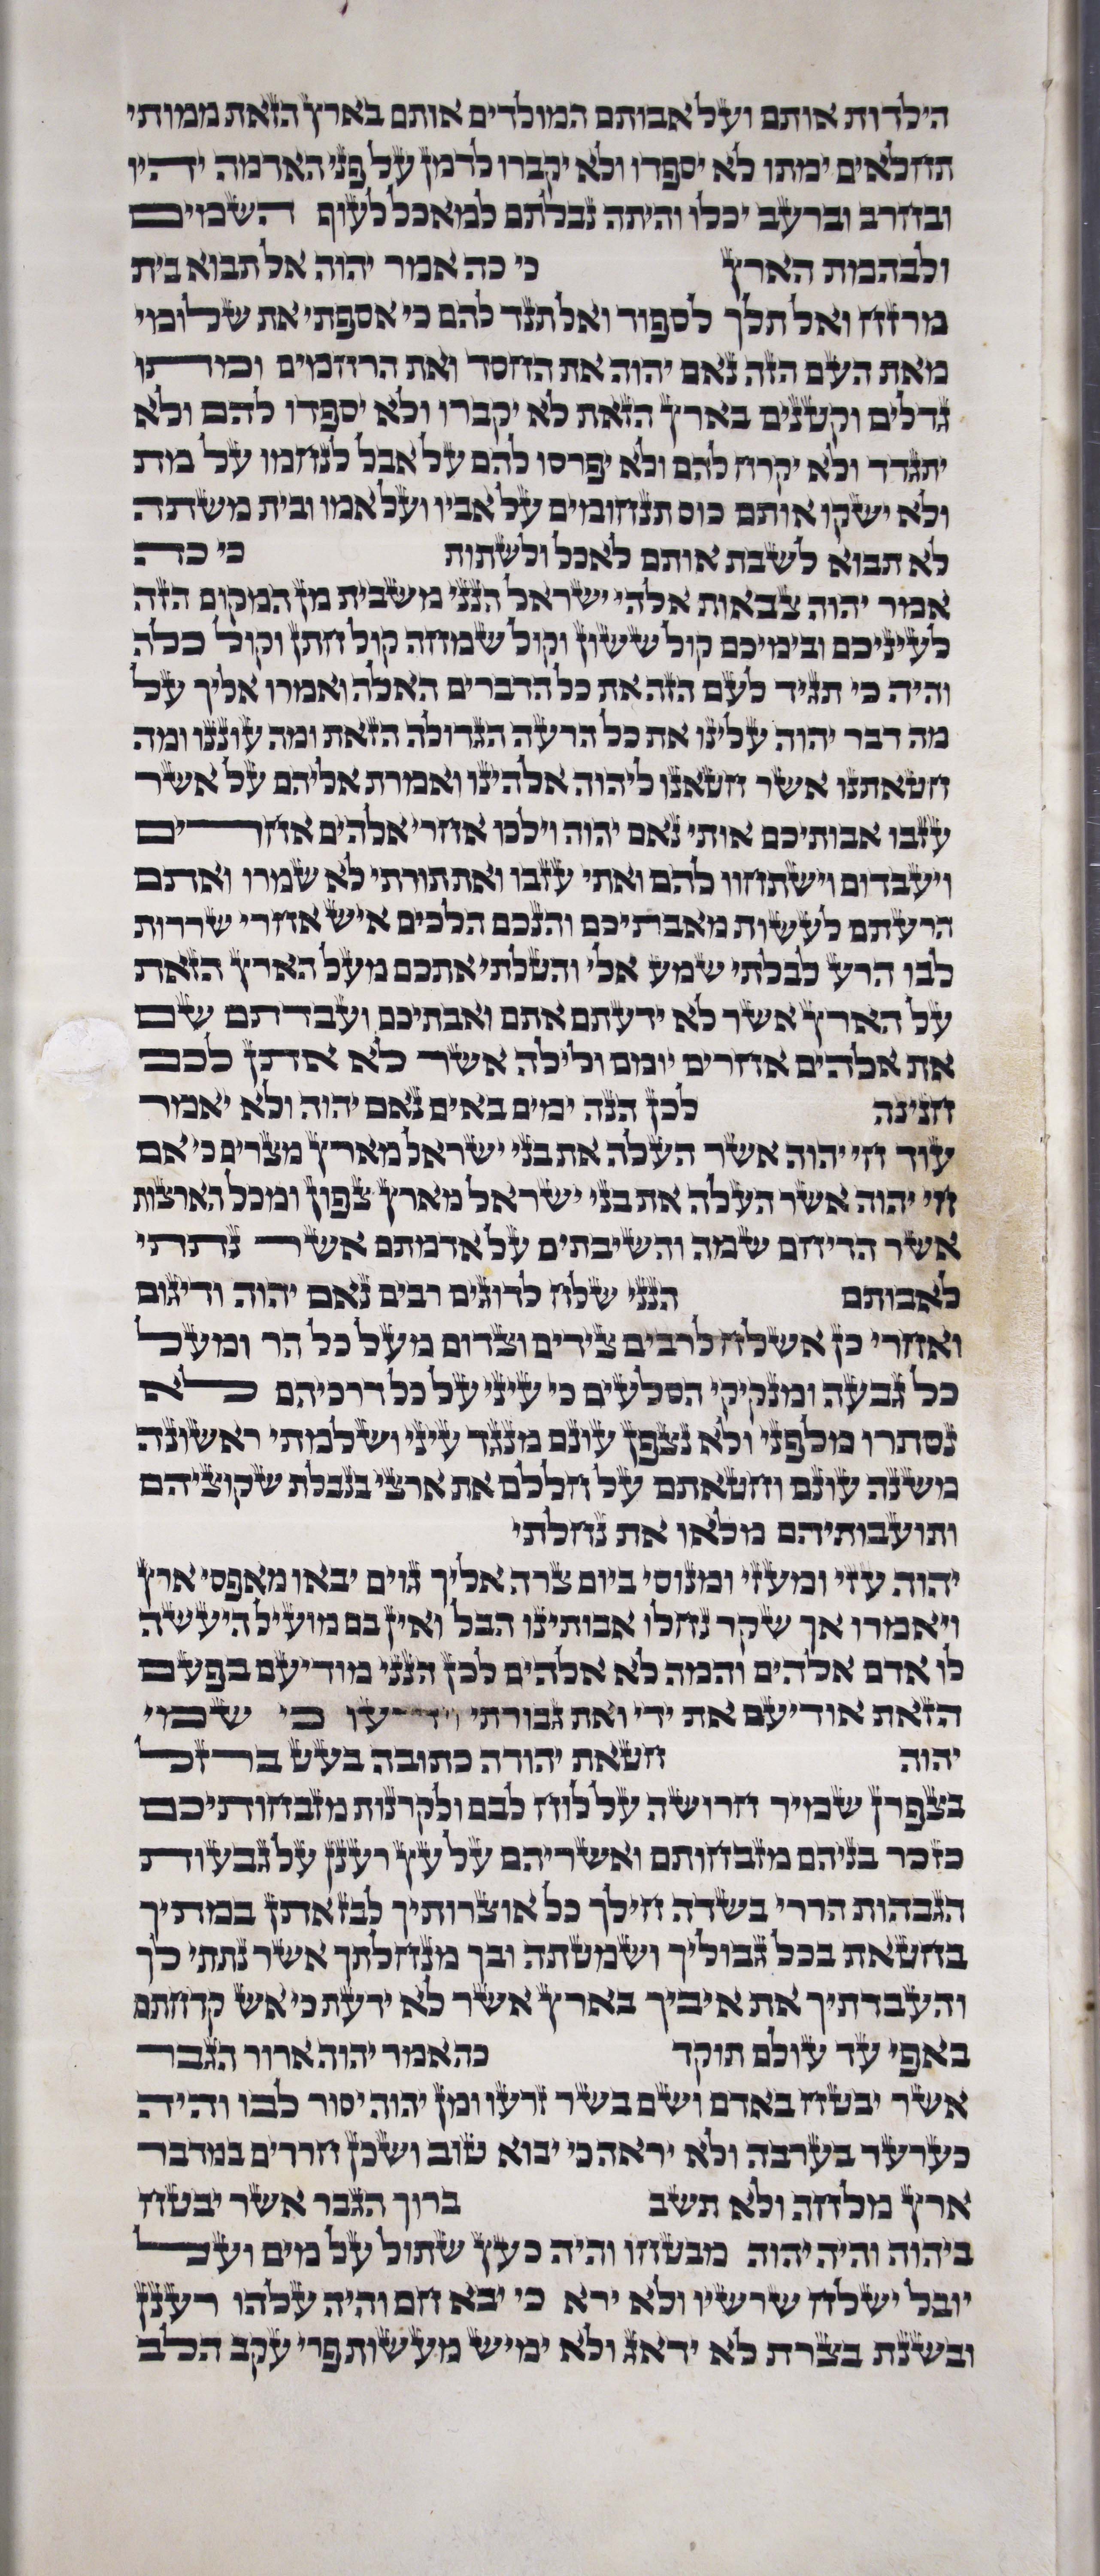 הילדות אותם ועל אבותם המולדים אותם בארץ הזאת ממותי
תחלאים ימתו לא יספדו ולא יקברו לדמן על פני הארמה יהיו
ובחרב וברעב יכלו והיתה נבלתם למאכל לעוף השמים
ולבהמת הארץ כי כה אמר יהוה אל תבוא בית
מרזח ואל תלך לספוד ואל תנד להם כי אספתי את שלומי
מאת העם הזה נאם יהוה את החסד ואת הרחמים ומתו
גדלים וקטנים בארץ הזאת לא יקברו ולא יספדו להם ולא
יתגדד ולא יקרח להם ולא יפרסו להם על אבל לנחמו על מת
ולא ישקו אותם כוס תנחומים על אביו ועל אמו ובית משתה
לא תבוא לשבת אותם לאכל ולשתות כי כה
אמר יהוה צבאות אלהי ישראל הנני משבית מן המקום הזה
לעיניכם ובימיכם קול ששון וקול שמחה קול חתן וקול כלה
והיה כי תגיד לעם הזה את כל הדברים האלה ואמרו אליך על
מה דבר יהוה עלינו את כל הרעה הגדולה הזאת ומה עוננו ומה
חטאתנו אשר חטאנו ליהוה אלהינו ואמרת אליהם על אשר
עזבו אבותיכם אותי נאם יהוה וילכו אחרי אלהים אחרים
ויעבדום וישתחוו להם ואתי עזבו ואת תורתי לא שמרו ואתם
הרעתם לעשות מאבתיכם והנכם הלכים איש אחרי שררות
לבו הרע לבלתי שמע אלי והטלתי אתכם מעל הארץ הזאת
על הארץ אשר לא ידעתם אתם ואבתיכם ועבדתם שם
את אלהים אחרים יומם ולילה אשר לא אתן לכם
חנינה לכן הנה ימים באים נאם יהוה ולא יאמר
עוד חי יהוה אשר העלה את בני ישראל מארץ מצרים כי אם
חי יהוה אשר העלה את בני ישראל מארץ צפון ומכל הארצות
אשר הדיחם שמה והשיבתים על אדמתם אשר נתתי
לאבותם הנני שלח לדוגים רבים נאם יהוה ודיגום
ואחרי כן אשלח לרבים צידים וצדום מעל כל הר ומעל
כל גבעה ומנקיקי הסלעים כי עיני על כל דרכיהם לא
נסתרו מלפני ולא נצפן עונם מנגד עיני ושלמתי ראשונה
משנה עונם וחטאתם על חללם את ארצי בנבלת שקוציהם
ותועבותיהם מלאו את נחלתי
יהוה עזי ומעזי ומנוסי ביום צרה אליך גוים יבאו מאפסי ארץ
ויאמרו אך שקר נחלו אבותינו הבל ואין בם מועיל היעשה
לו אדם אלהים והמה לא אלהים לכן הנני מודיעם בפעם
הזאת אודיעם את ידי ואת גבורתי וידעו כי שמי
יהוה חטאת יהודה כתובה בעט ברזל
בצפרן שמיר חרושה על לוח לבם ולקרנות מזבחותיכם
כזכר בניהם מזבחותם ואשריהם על עץ רענן על גבעות
הגבהות הררי בשדה חילך כל אוצרותיך לבז אתן במתיך
בחטאת בכל גבוליך ושמטתה ובך מנחלתך אשר נתתי לך
והעבדתיך את איביך בארץ אשר לא ידעת כי אש קדחתם
באפי עד עולם תוקד כה אמר יהוה ארור הגבר
אשר יבטח באדם ושם בשר זרעו ומן יהוה יסור לבו והיה
כערער בערבה ולא יראה כי יבוא טוב ושכן חררים במדבר
ארץ מלחה ולא תשב ברוך הגבר אשר יבטח
ביהוה והיה יהוה מבטחו והיה כעץ שתול על מים ועל
יובל ישלח שרשיו ולא ירא כי יבא חם והיה עלהו רענן
ובשנת בצרת לא ידאג ולא ימיש מעשות פרי עקב הלב